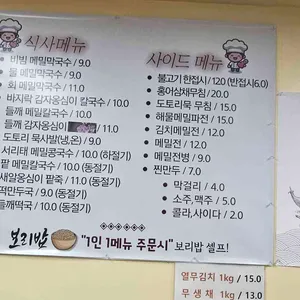 식사메뉴
비빔 메밀막국수 / 9.0
물 메밀막국수 / 9.0
회 메밀막국수 / 11.0
바지락 감자옹심이 칼국수 / 10.0
들깨 메밀칼국수 / 10.0
들깨 감자옹심이 / 11.0
도토리 묵사발(냉,온) / 9.0
서리태 메밀콩국수 / 10.0 (하절기)
팥 메밀칼국수 / 10.0 (동절기)
새알옹심이 팥죽 / 11.0 (동절기)
떡만두국 / 9.0 (동절기)
들깨떡국 / 10.0 (동절기)
사이드 메뉴
불고기 한접시 / 12.0 (반접시6.0)
홍어삼채무침 / 20.0
도토리묵 무침 / 15.0
해물메밀파전 / 15.0
김치메밀전 / 12.0
메밀전 / 12.0
메밀전병 / 9.0
찐만두 / 7.0
막걸리 / 4.0
소주,맥주 / 5.0
콜라,사이다 / 2.0
보리밥 "1인 1메뉴 주문시" 보리밥 셀프!
열무김치 1kg / 15.0
무 생 채 1kg / 13.0